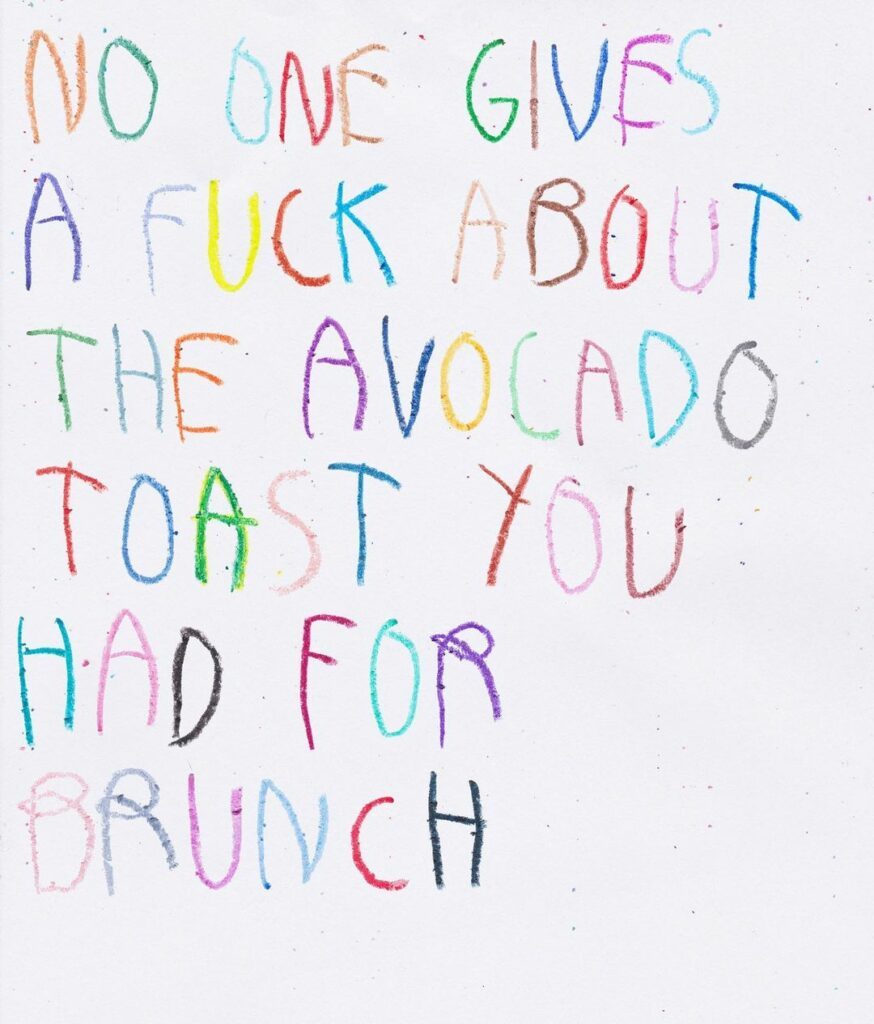 NO ONE GIVES
A FUCK ABOUT
THE AVOCADO
TOAST YOU
HAD FOR
BRUNCH